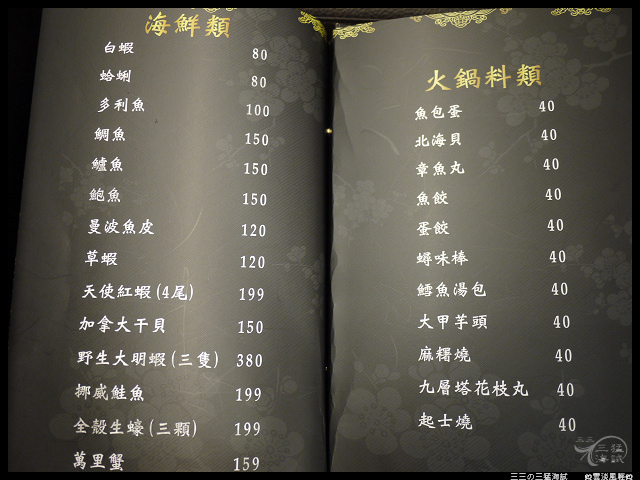 海鮮類
白蝦 80
蛤蜊 80
多利魚 100
鯛魚 150
鱸魚 150
鮑魚 150
曼波魚皮 120
草蝦 120
天使紅蝦(4尾) 199
加拿大干貝 150
野生大明蝦(三隻) 380
挪威鮭魚 199
全殼生蠔(三顆) 199
萬里蟹 159
火鍋料類
魚包蛋 40
北海貝 40
章魚丸 40
魚餃 40
蛋餃 40
蟳味棒 40
鱈魚湯包 40
大甲芋頭 40
麻糬燒 40
九層塔花枝丸 40
起士燒 40
三三の三猛海試
雲淡風輕